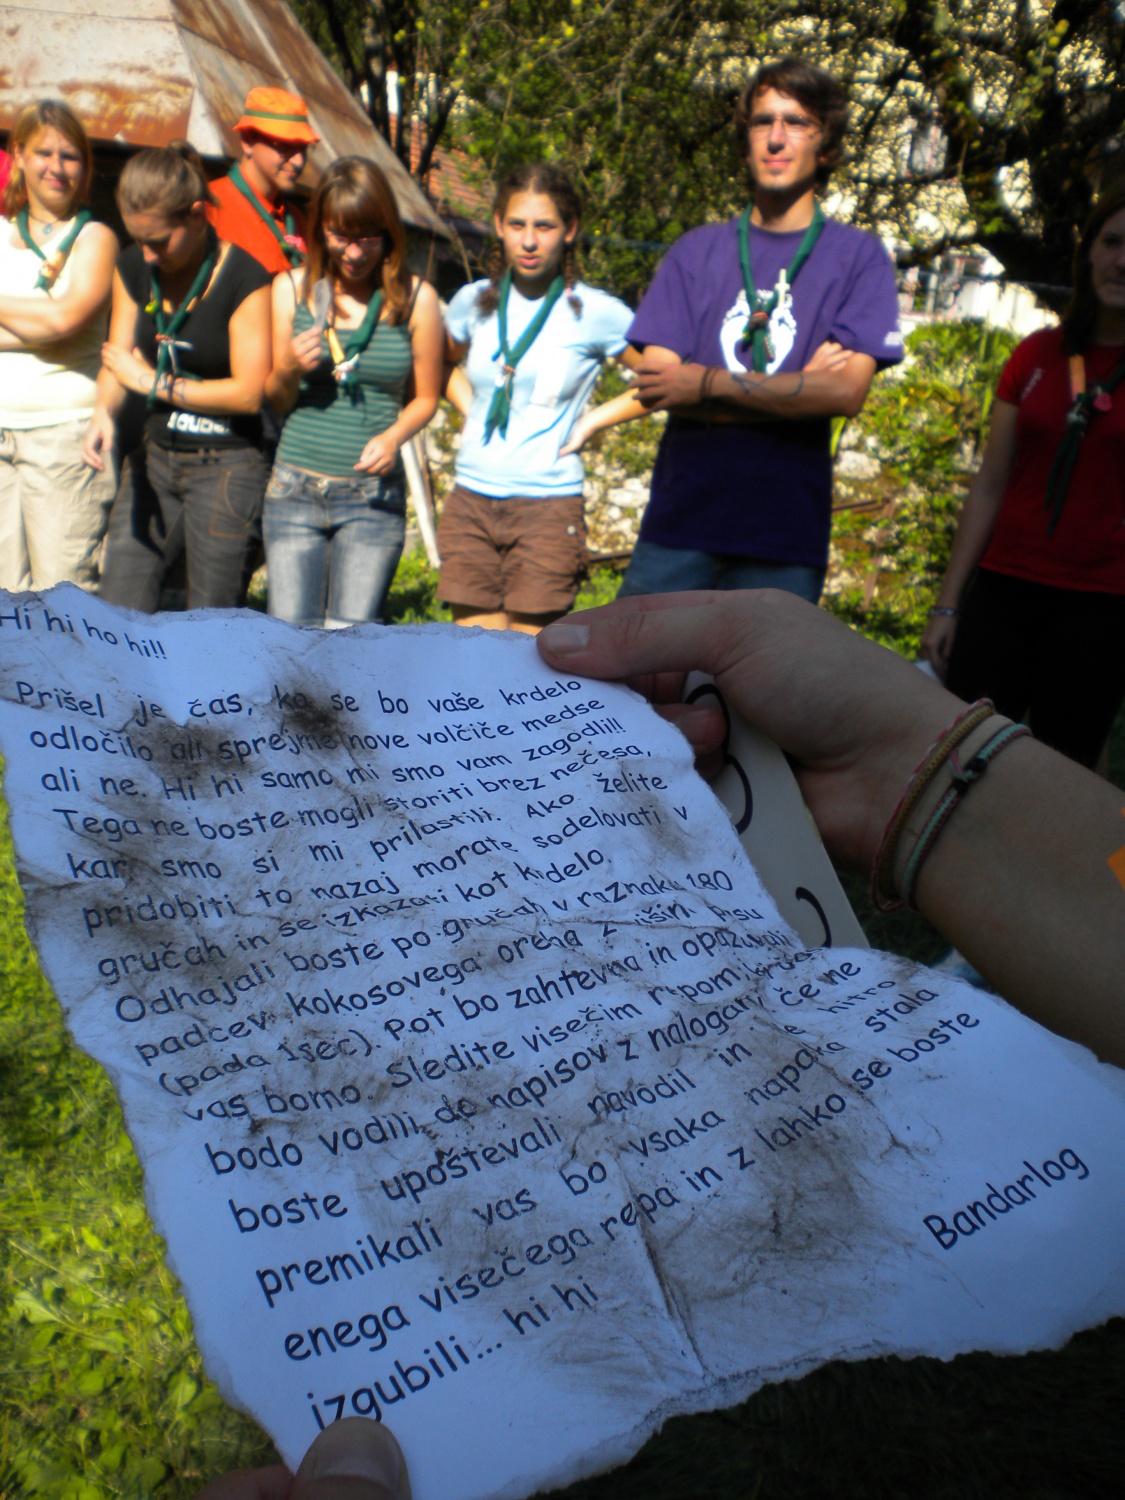 Hi hi ho hi!!
Prišel je čas, ko se bo vaše krdelo
odločilo ali sprejme nove volčiče medse
ali ne. Hi hi samo mi smo vam zagodli!!
Tega ne boste mogli storiti brez nečesa,
kar smo si mi prilastili. Ako želite
pridobiti to nazaj morate sodelovati v
gručah in se izkazati kot krdelo.
Odhajali boste po gručah v razmaku 180
padcev kokosovega oreha z višin
(pada 1sec). Pot bo zahtevna in opazovali
vas bomo. Sledite visečim repom
bodo vodili do napisov z nalogami če ne
boste upoštevali navodil in se hitro
premikali vas bo vsaka napaka stala
enega visečega repa in z lahko se boste
izgubili... hi hi
Bandarlog